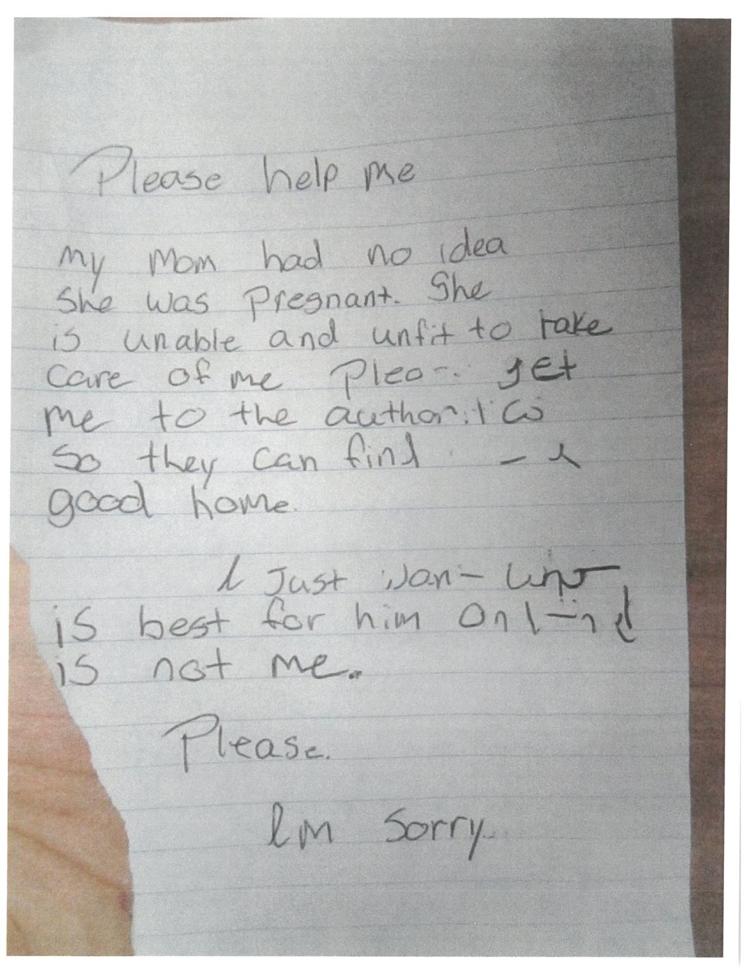 Please help me
my mom had no idea
she was pregnant. She
is unable and unfit to take
care of me get
me to the
so they can find
good home.
I Just
is best for him
is not me.
Please.
Im sorry.